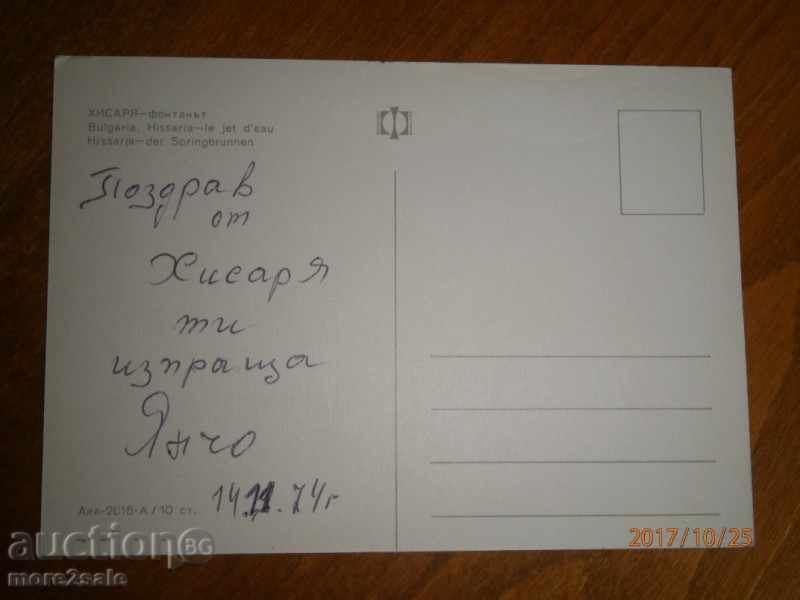 ХИСАРЯ—фонтанът
Bulgaria, Hissaria—le jet d'eau
Hissarja—der Soringbrunnen
Поздрав
от
Хисаря
ти
изпраща
Янчо
14.11.74г
Акл-2015-А / 10 ст.
2017/10/25
auction BG
more2sale